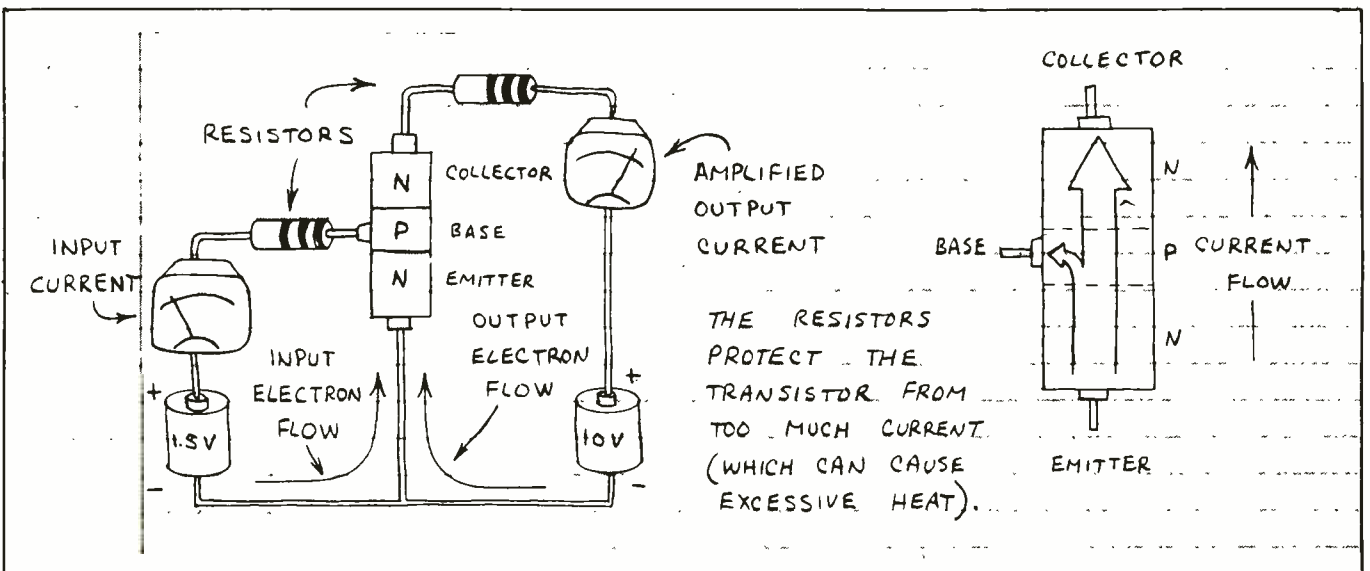 RESISTORS
N
COLLECTOR
P
BASE
N
EMITTER
INPUT
CURRENT
AMPLIFIED
OUTPUT
CURRENT
INPUT
ELECTRON
FLOW
OUTPUT
ELECTRON
FLOW
+
1.5V
-
+
10V
-
THE RESISTORS
PROTECT THE
TRANSISTOR FROM
TOO MUCH CURRENT
(WHICH CAN CAUSE
EXCESSIVE HEAT).
COLLECTOR
N
BASE
P
N
CURRENT
FLOW
EMITTER